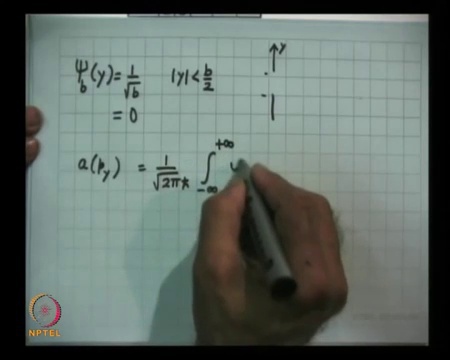 ψ_b(y) = 1/√b |y| < b/2
= 0
y
a(p_y) = 1/√2πħ ∫_{-∞}^{+∞}
NPTEL